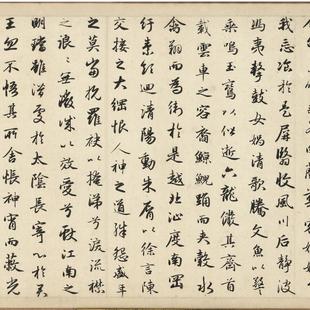 我忘飡於是屏翳收風川后靜波
馮夷擊鼓女媧清歌騰文魚以警
乘鳴玉鸞以偕逝六龍儼其齊首
載雲車之容裔鯨鯢踊而夾轂水
禽翔而為衛於是越北沚度南岡
紆素領迴清陽動朱脣以徐言陳
交接之大綱恨人神之道殊怨盛年
之莫當抗羅袂以掩涕兮淚流襟
之浪浪無微情以效愛兮獻江南之
明璫雖潛處於太陰長寄心於君
王忽不悟其所舍悵神宵而蔽光